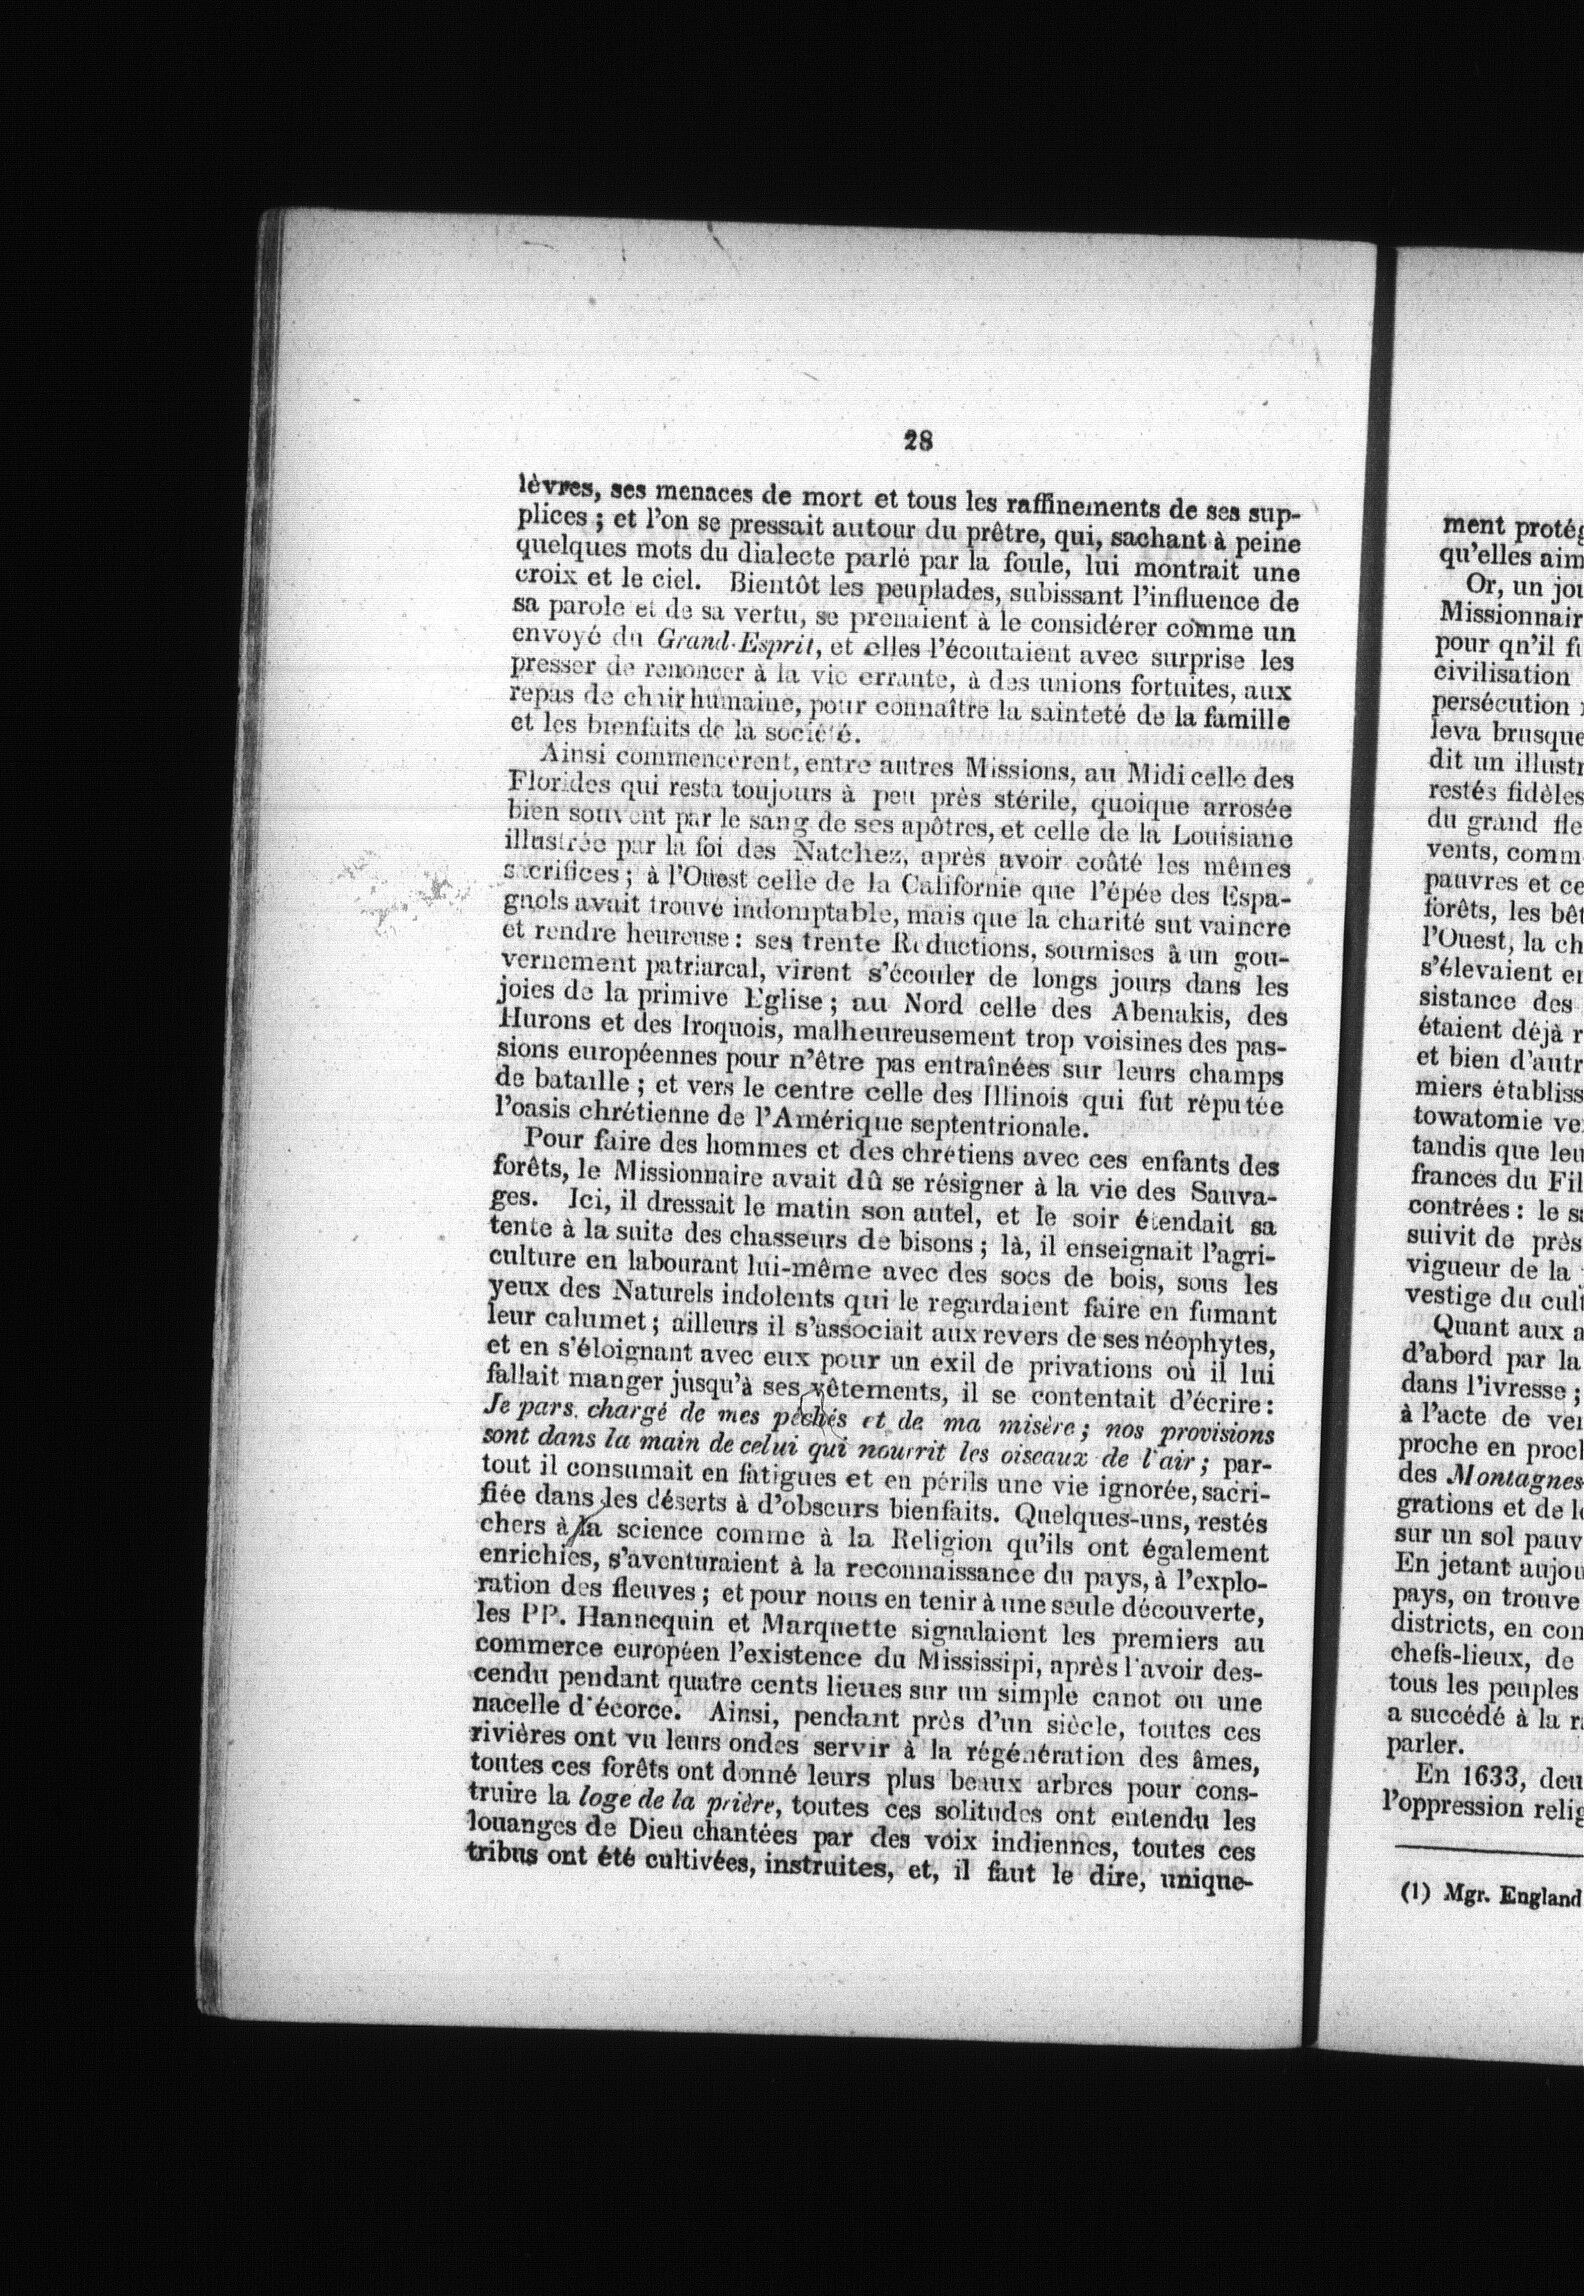 28
lèvres, ses menaces de mort et tous les raffinements de ses sup-
plices ; et l'on se pressait autour du prêtre, qui, sachant à peine
quelques mots du dialecte parlé par la foule, lui montrait une
croix et le ciel. Bientôt les peuplades, subissant l'influence de
sa parole et de sa vertu, se prenaient à le considérer comme un
envoyé du Grand-Esprit, et elles l'écoutaient avec surprise les
presser de renoncer à la vie errante, à des unions fortuites, aux
repas de chair humaine, pour connaître la sainteté de la famille
et les bienfaits de la société.
Ainsi commencèrent, entre autres Missions, au Midi celle des
Florides qui resta toujours à peu près stérile, quoique arrosée
bien souvent par le sang de ses apôtres, et celle de la Louisiane
illustrée par la foi des Natchez, après avoir coûté les mêmes
sacrifices ; à l'Ouest celle de la Californie que l'épée des Espa-
gnols avait trouvé indomptable, mais que la charité sut vaincre
et rendre heureuse : ses trente Réductions, soumises à un gou-
vernement patriarcal, virent s'écouler de longs jours dans les
joies de la primive Eglise ; au Nord celle des Abenakis, des
Hurons et des Iroquois, malheureusement trop voisines des pas-
sions européennes pour n'être pas entraînées sur leurs champs
de bataille ; et vers le centre celle des Illinois qui fut réputée
l'oasis chrétienne de l'Amérique septentrionale.
Pour faire des hommes et des chrétiens avec ces enfants des
forêts, le Missionnaire avait dû se résigner à la vie des Sauva-
ges. Ici, il dressait le matin son autel, et le soir étendait sa
tente à la suite des chasseurs de bisons ; là, il enseignait l'agri-
culture en labourant lui-même avec des socs de bois, sous les
yeux des Naturels indolents qui le regardaient faire en fumant
leur calumet ; ailleurs il s'associait aux revers de ses néophytes,
et en s'éloignant avec eux pour un exil de privations où il lui
fallait manger jusqu'à ses vêtements, il se contentait d'écrire :
Je pars. chargé de mes péchés et de ma misère ; nos provisions
sont dans la main de celui qui nourrit les oiseaux de l'air ; par-
tout il consumait en fatigues et en périls une vie ignorée, sacri-
fiée dans les déserts à d'obscurs bienfaits. Quelques-uns, restés
chers à la science comme à la Religion qu'ils ont également
enrichies, s'aventuraient à la reconnaissance du pays, à l'explo-
ration des fleuves ; et pour nous en tenir à une seule découverte,
les PP. Hannequin et Marquette signalaient les premiers au
commerce européen l'existence du Mississipi, après l'avoir des-
cendu pendant quatre cents lieues sur un simple canot ou une
nacelle d'écorce. Ainsi, pendant près d'un siècle, toutes ces
rivières ont vu leurs ondes servir à la régénération des âmes,
toutes ces forêts ont donné leurs plus beaux arbres pour cons-
truire la loge de la prière, toutes ces solitudes ont entendu les
louanges de Dieu chantées par des voix indiennes, toutes ces
tribus ont été cultivées, instruites, et, il faut le dire, unique-
ment protég
qu'elles aim
Or, un jou
Missionnair
pour qn'il fu
civilisation
persécution
leva brusque
dit un illustr
restés fidèles
du grand fle
vents, comm
pauvres et ce
forêts, les bêt
l'Ouest, la ch
s'élevaient en
sistance des
étaient déjà r
et bien d'autr
miers établiss
towatomie ve
tandis que leu
frances du Fil
contrées : le s
suivit de près
vigueur de la
vestige du cult
Quant aux a
d'abord par la
dans l'ivresse ;
à l'acte de ven
proche en proch
des Montagnes
grations et de le
sur un sol pauv
En jetant aujou
pays, on trouve
districts, en con
chefs-lieux, de
tous les peuples
a succédé à la r
parler.
En 1633, deu
l'oppression relig
(1) Mgr. England